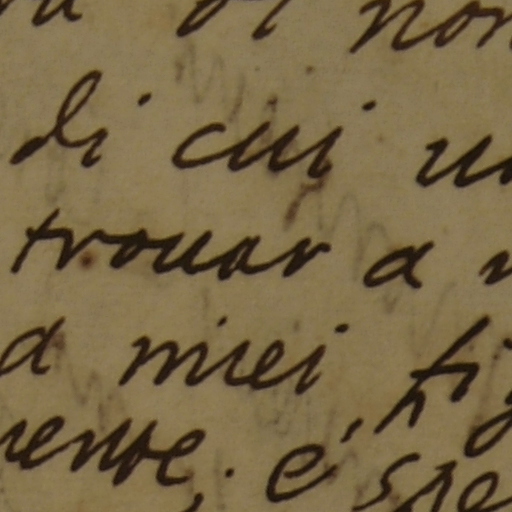 di cui
trovar a
a miei fi
mente, e spe